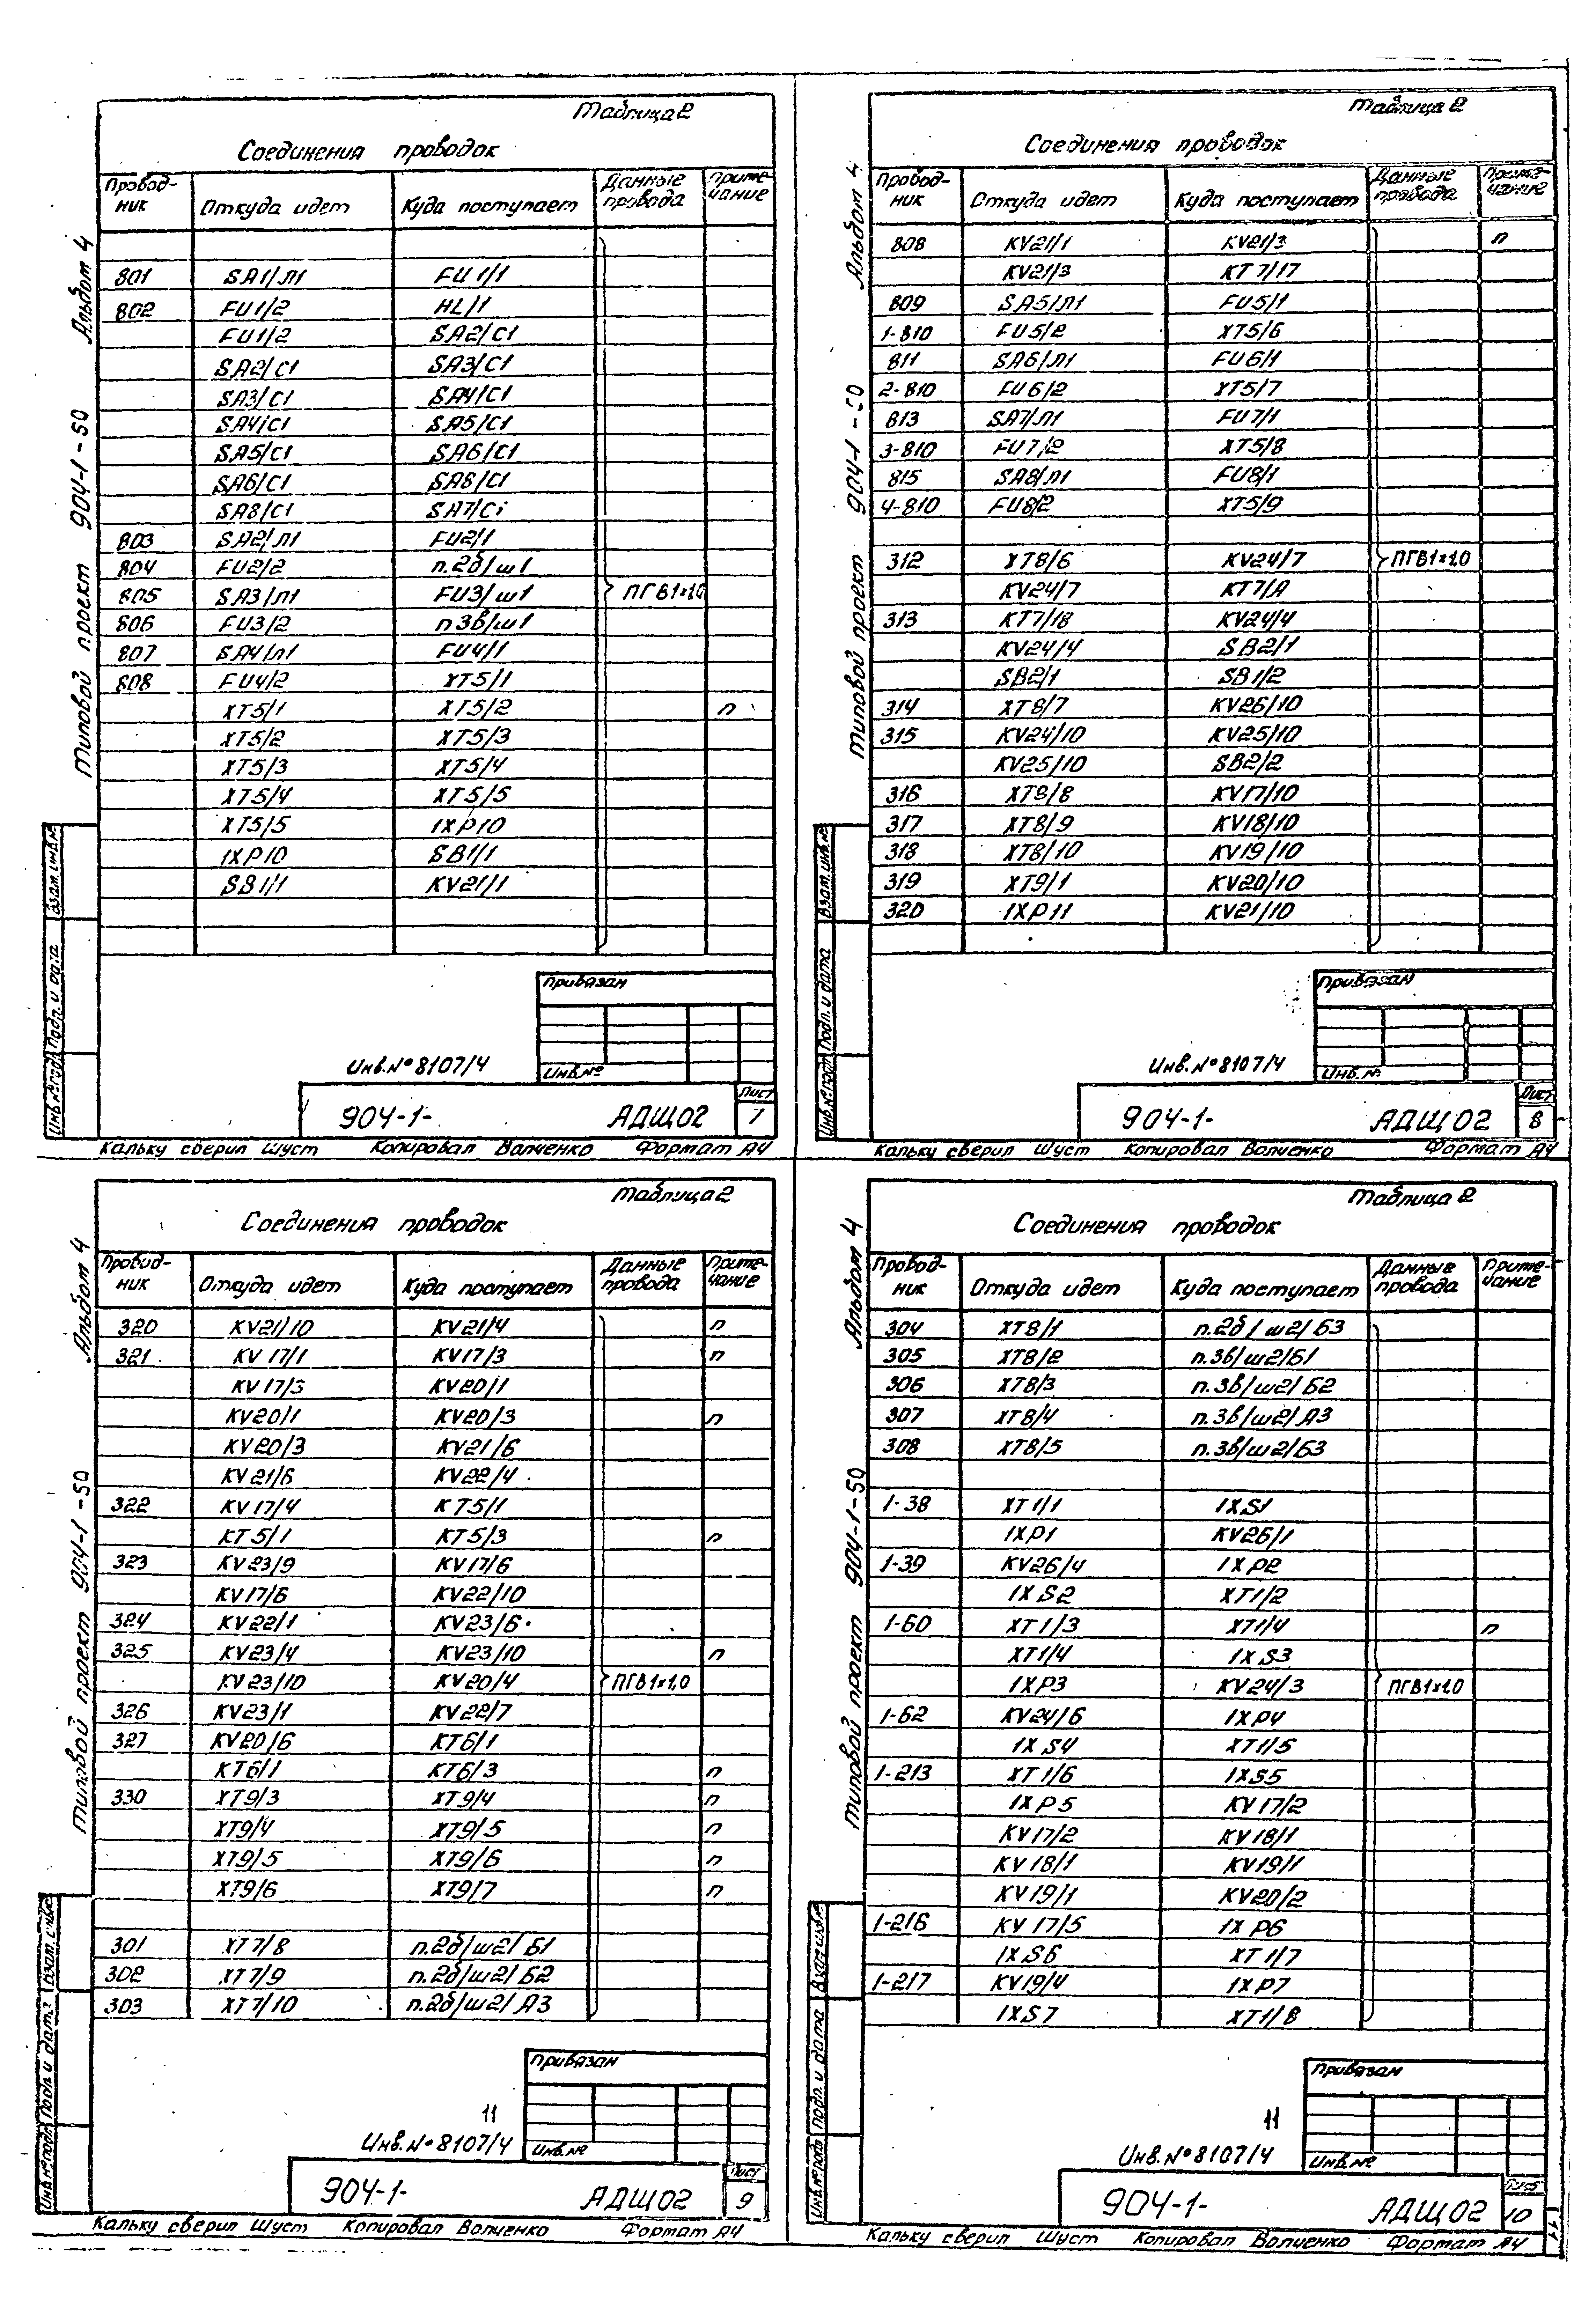 Таблица 2
Соединения проводок
Провод-ник Откуда идет Куда поступает Данные провода Приме-чание
801 SA1/Л1 FU1/1
802 FU1/2 HL/1
FU1/2 SA2/C1
SA2/C1 SA3/C1
SA3/C1 SA4/C1
SA4/C1 SA5/C1
SA5/C1 SA6/C1
SA6/C1 SA8/C1
SA8/C1 SA7/C1
803 SA2/Л1 FU2/1
804 FU2/2 п.2б/ш1
805 SA3/Л1 FU3/ш1 ПГВ1×1,0
806 FU3/2 п3в/ш1
807 SA4/Л1 FU4/1
808 FU4/2 XT5/1
XT5/1 XT5/2 п
XT5/2 XT5/3
XT5/3 XT5/4
XT5/4 XT5/5
XT5/5 1XP10
1XP10 SB1/1
SB1/1 KV21/1
Альбом 4
Типовой проект 904-1-50
Взам. инв.№
Подп. и дата
Инв.№ подл.
Привязан
Инв.№
Инв.№ 8107/4
904-1- АДЩ02
Лист
7
Кальку сверил Шуст Копировал Волченко Формат А4
Таблица 2
Соединения проводок
Провод-ник Откуда идет Куда поступает Данные провода Приме-чание
808 KV21/1 KV21/3 п
KV21/3 KT7/17
809 SA5/Л1 FU5/1
1-810 FU5/2 XT5/6
811 SA6/Л1 FU6/1
2-810 FU6/2 XT5/7
813 SA7/Л1 FU7/1
3-810 FU7/2 XT5/8
815 SA8/Л1 FU8/1
4-810 FU8/2 XT5/9
312 XT8/6 KV24/7 ПГВ1×1,0
KV24/7 KT7/A
313 KT7/18 KV24/4
KV24/4 SB2/1
SB2/1 SB1/2
314 XT8/7 KV26/10
315 KV24/10 KV25/10
KV25/10 SB2/2
316 XT8/8 KV17/10
317 XT8/9 KV18/10
318 XT8/10 KV19/10
319 XT9/1 KV20/10
320 1XP11 KV21/10
Альбом 4
Типовой проект 904-1-50
Взам. инв.№
Подп. и дата
Инв.№ подл.
Привязан
Инв.№
Инв.№ 8107/4
904-1- АДЩ02
Лист
8
Кальку сверил Шуст Копировал Волченко Формат А4
Таблица 2
Соединения проводок
Провод-ник Откуда идет Куда поступает Данные провода Приме-чание
320 KV21/10 KV21/4 п
321 KV17/1 KV17/3 п
KV17/3 KV20/1
KV20/1 KV20/3 п
KV20/3 KV21/6
KV21/6 KV22/4
322 KV17/4 KT5/1
KT5/1 KT5/3 п
323 KV23/9 KV17/6
KV17/6 KV22/10
324 KV22/1 KV23/6
325 KV23/4 KV23/10 п
KV23/10 KV20/4 ПГВ1×1,0
326 KV23/1 KV22/7
327 KV20/6 KT6/1
KT6/1 KT6/3 п
330 XT9/3 XT9/4 п
XT9/4 XT9/5 п
XT9/5 XT9/6 п
XT9/6 XT9/7 п
301 XT7/8 п.2б/ш2/Б1
302 XT7/9 п.2б/ш2/Б2
303 XT7/10 п.2б/ш2/А3
Альбом 4
Типовой проект 904-1-50
Взам. инв.
Подп. и дата
Инв.№ подл.
Привязан
Инв.№
11
Инв.№ 8107/4
904-1- АДЩ02
Лист
9
Кальку сверил Шуст Копировал Волченко Формат А4
Таблица 2
Соединения проводок
Провод-ник Откуда идет Куда поступает Данные провода Приме-чание
304 XT8/1 п.2б/ш2/Б3
305 XT8/2 п.3в/ш2/Б1
306 XT8/3 п.3в/ш2/Б2
307 XT8/4 п.3в/ш2/А3
308 XT8/5 п.3в/ш2/Б3
1-38 XT1/1 1XS1
1XP1 KV26/1
1-39 KV26/4 1XP2
1XS2 XT1/2
1-60 XT1/3 XT1/4 п
XT1/4 1XS3
1XP3 KV24/3 ПГВ1×1,0
1-62 KV24/6 1XP4
1XS4 XT1/5
1-213 XT1/6 1XS5
1XP5 KV17/2
KV17/2 KV18/1
KV18/1 KV19/1
KV19/1 KV20/2
1-216 KV17/5 1XP6
1XS6 XT1/7
1-217 KV19/4 1XP7
1XS7 XT1/8
Альбом 4
Типовой проект 904-1-50
Взам. инв.№
Подп. и дата
Инв.№ подл.
Привязан
Инв.№
11
Инв.№ 8107/4
904-1- АДЩ02
Лист
10
Кальку сверил Шуст Копировал Волченко Формат А4